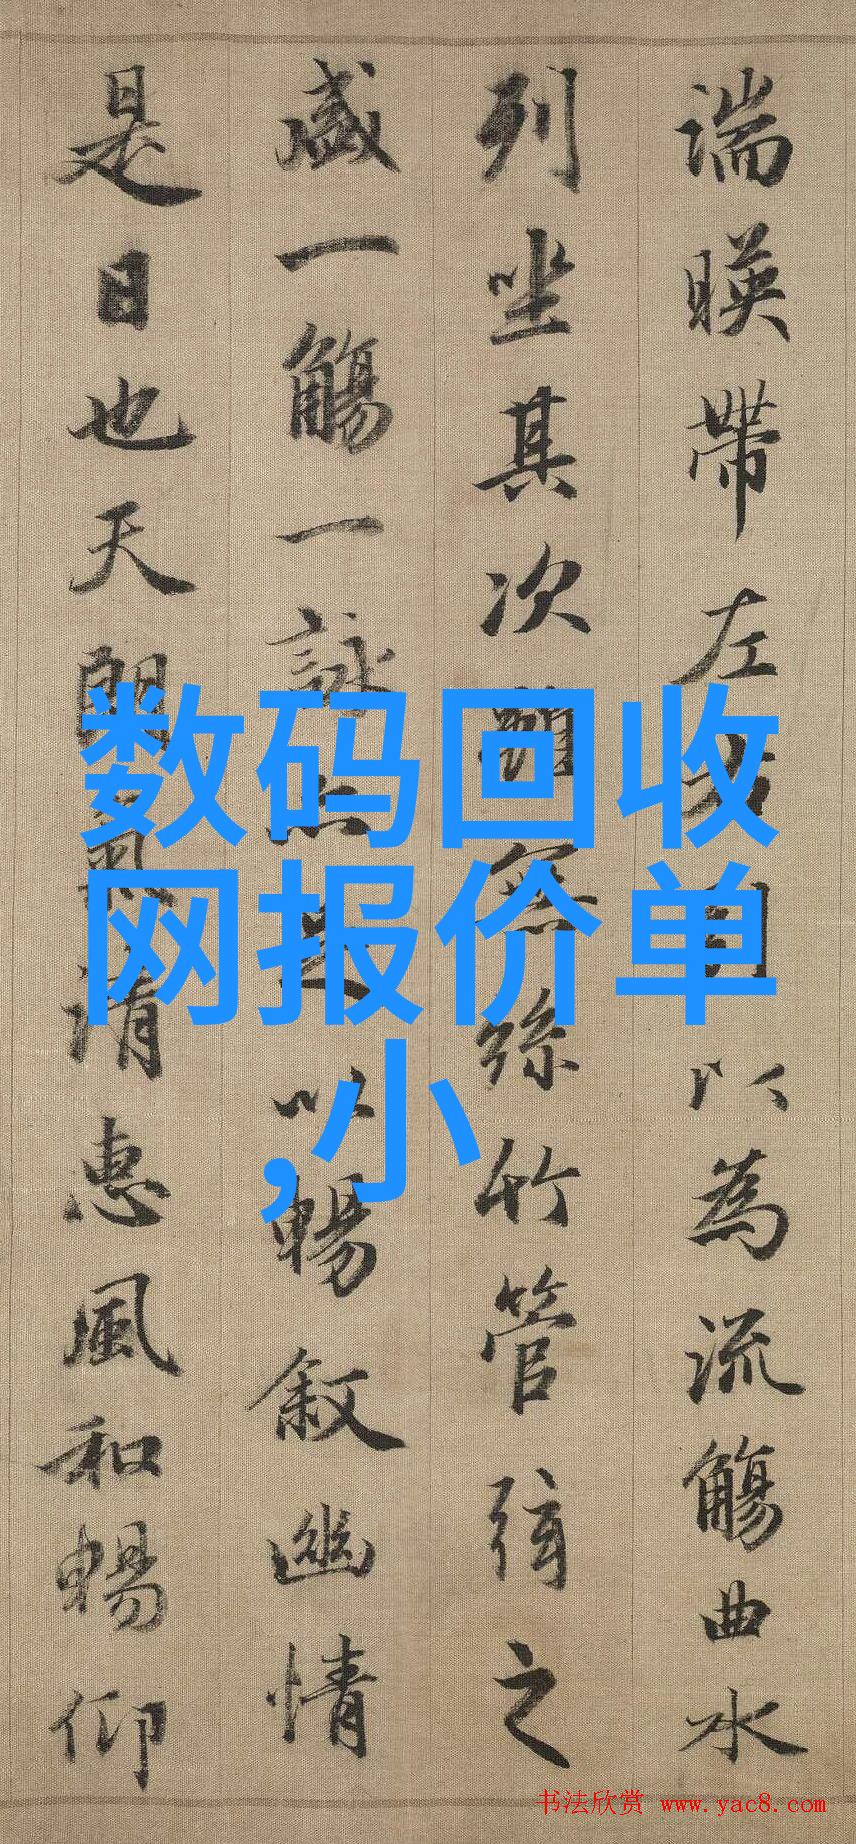 湍暎帶左右引以為流觴曲水
列坐其次雖無絲竹管弦之
盛一觴一詠亦足以暢敘幽情
是日也天朗氣清惠風和暢仰
数码回收
网报价单
,小
书法欣赏 www.yac8.com